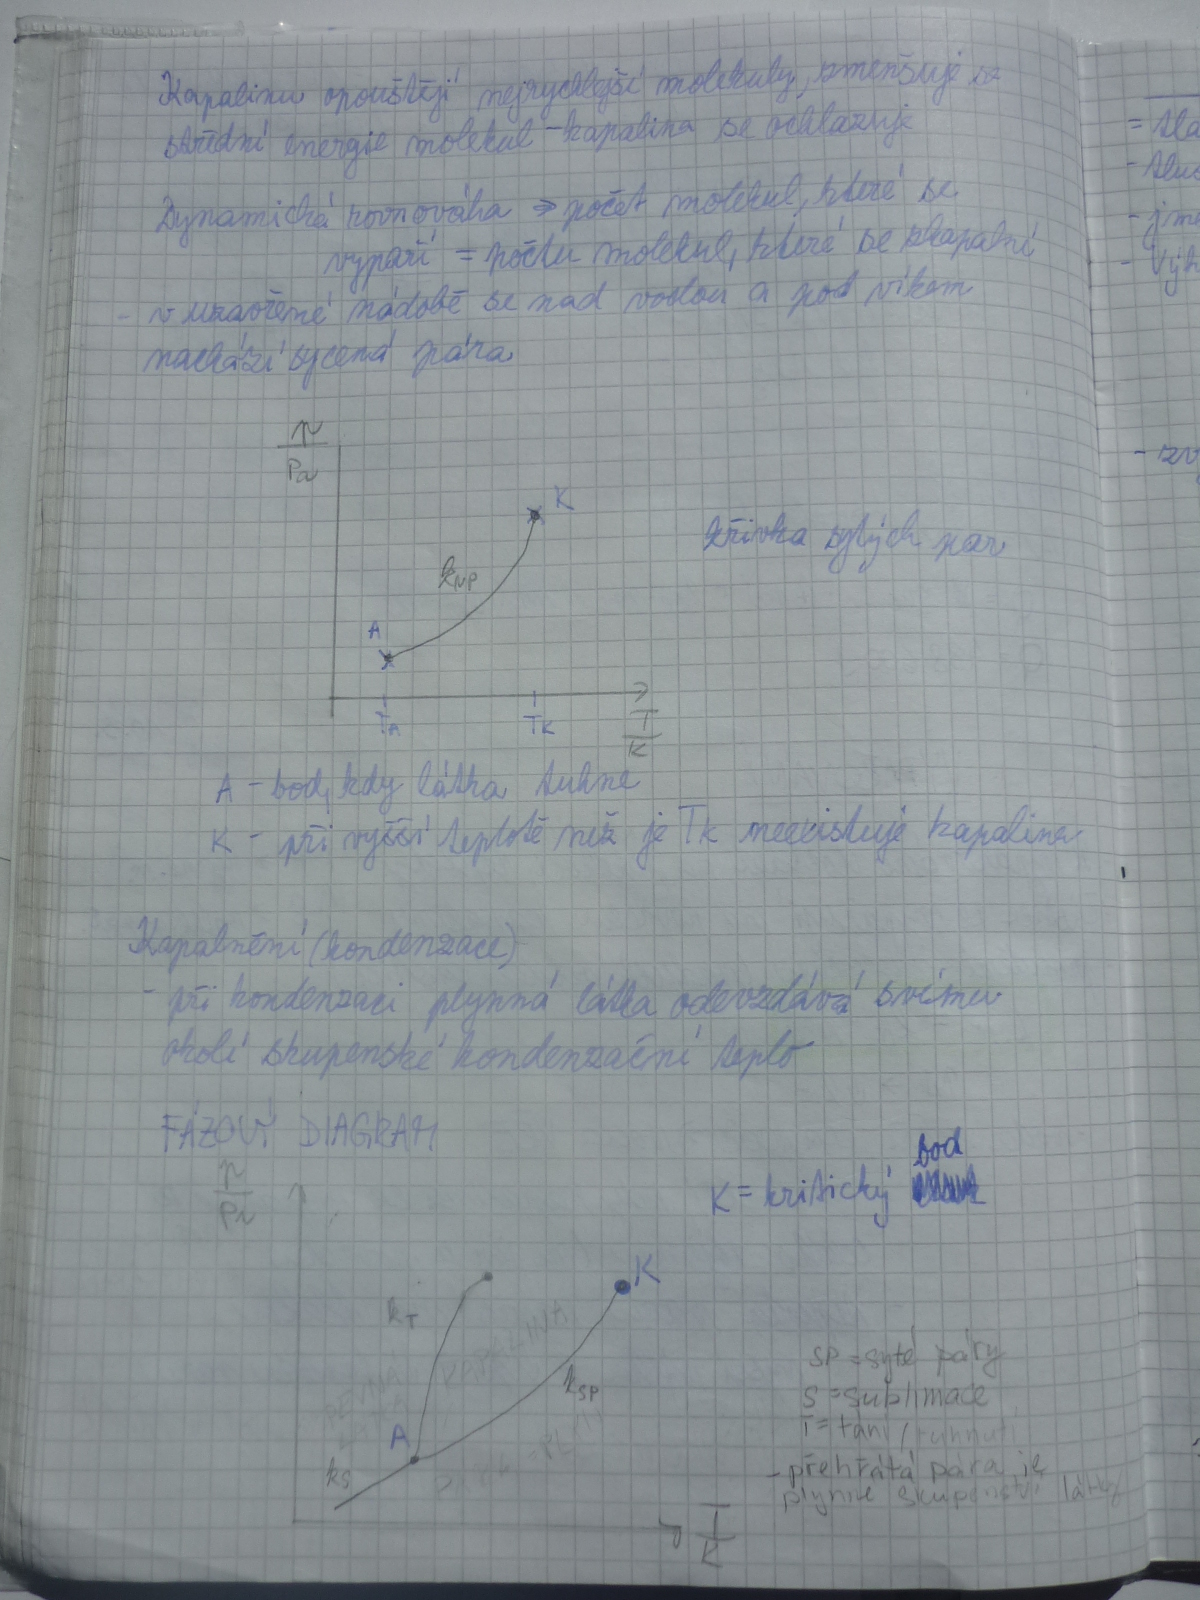 Kapalinu opouštějí nejrychlejší molekuly, zmenšuje se
střední energie molekul - kapalina se ochlazuje
Dynamická rovnováha => počet molekul, které se
vypaří = počtu molekul, které se zkapalní
- v uzavřené nádobě se nad vodou a pod víkem
nachází sycená pára
p
Pa
K
křivka sytých par
k
A
TA
TK
T
K
A - bod, kdy látka tuhne
K - při vyšší teplotě než je Tk neexistuje kapalina
Kapalnění (kondenzace)
- při kondenzaci plynná látka odevzdává svému
okolí skupenské kondenzační teplo
FÁZOVÝ DIAGRAM
p
Pa
bod
K = kritický
K
kT
KAPALINA
PEVNÁ
LÁTKA
kSP
SP = syté páry
S = sublimace
T = tání / tuhnutí
A
kS
PÁRA = PLYN
- přehřátá pára je
plynné skupenství látky
T
K
= tla
- jme